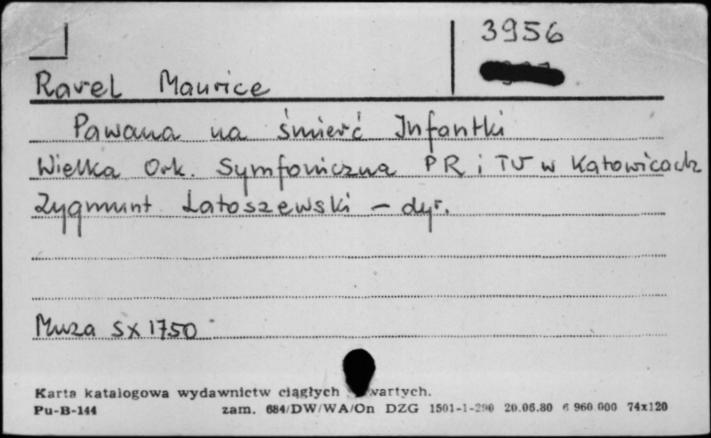 3956
Ravel Maurice
Pawana na śmierć Infantki
Wielka Ork. Symfoniczna PR i TV w Katowicach
Zygmunt Latoszewski – dyr.
Muza SX 1750
Karta katalogowa wydawnictw ciągłych wartych.
Pu-B-144 zam. 684/DW/WA/On DZG 1501-1-290 20.05.80 6 960 000 74x120